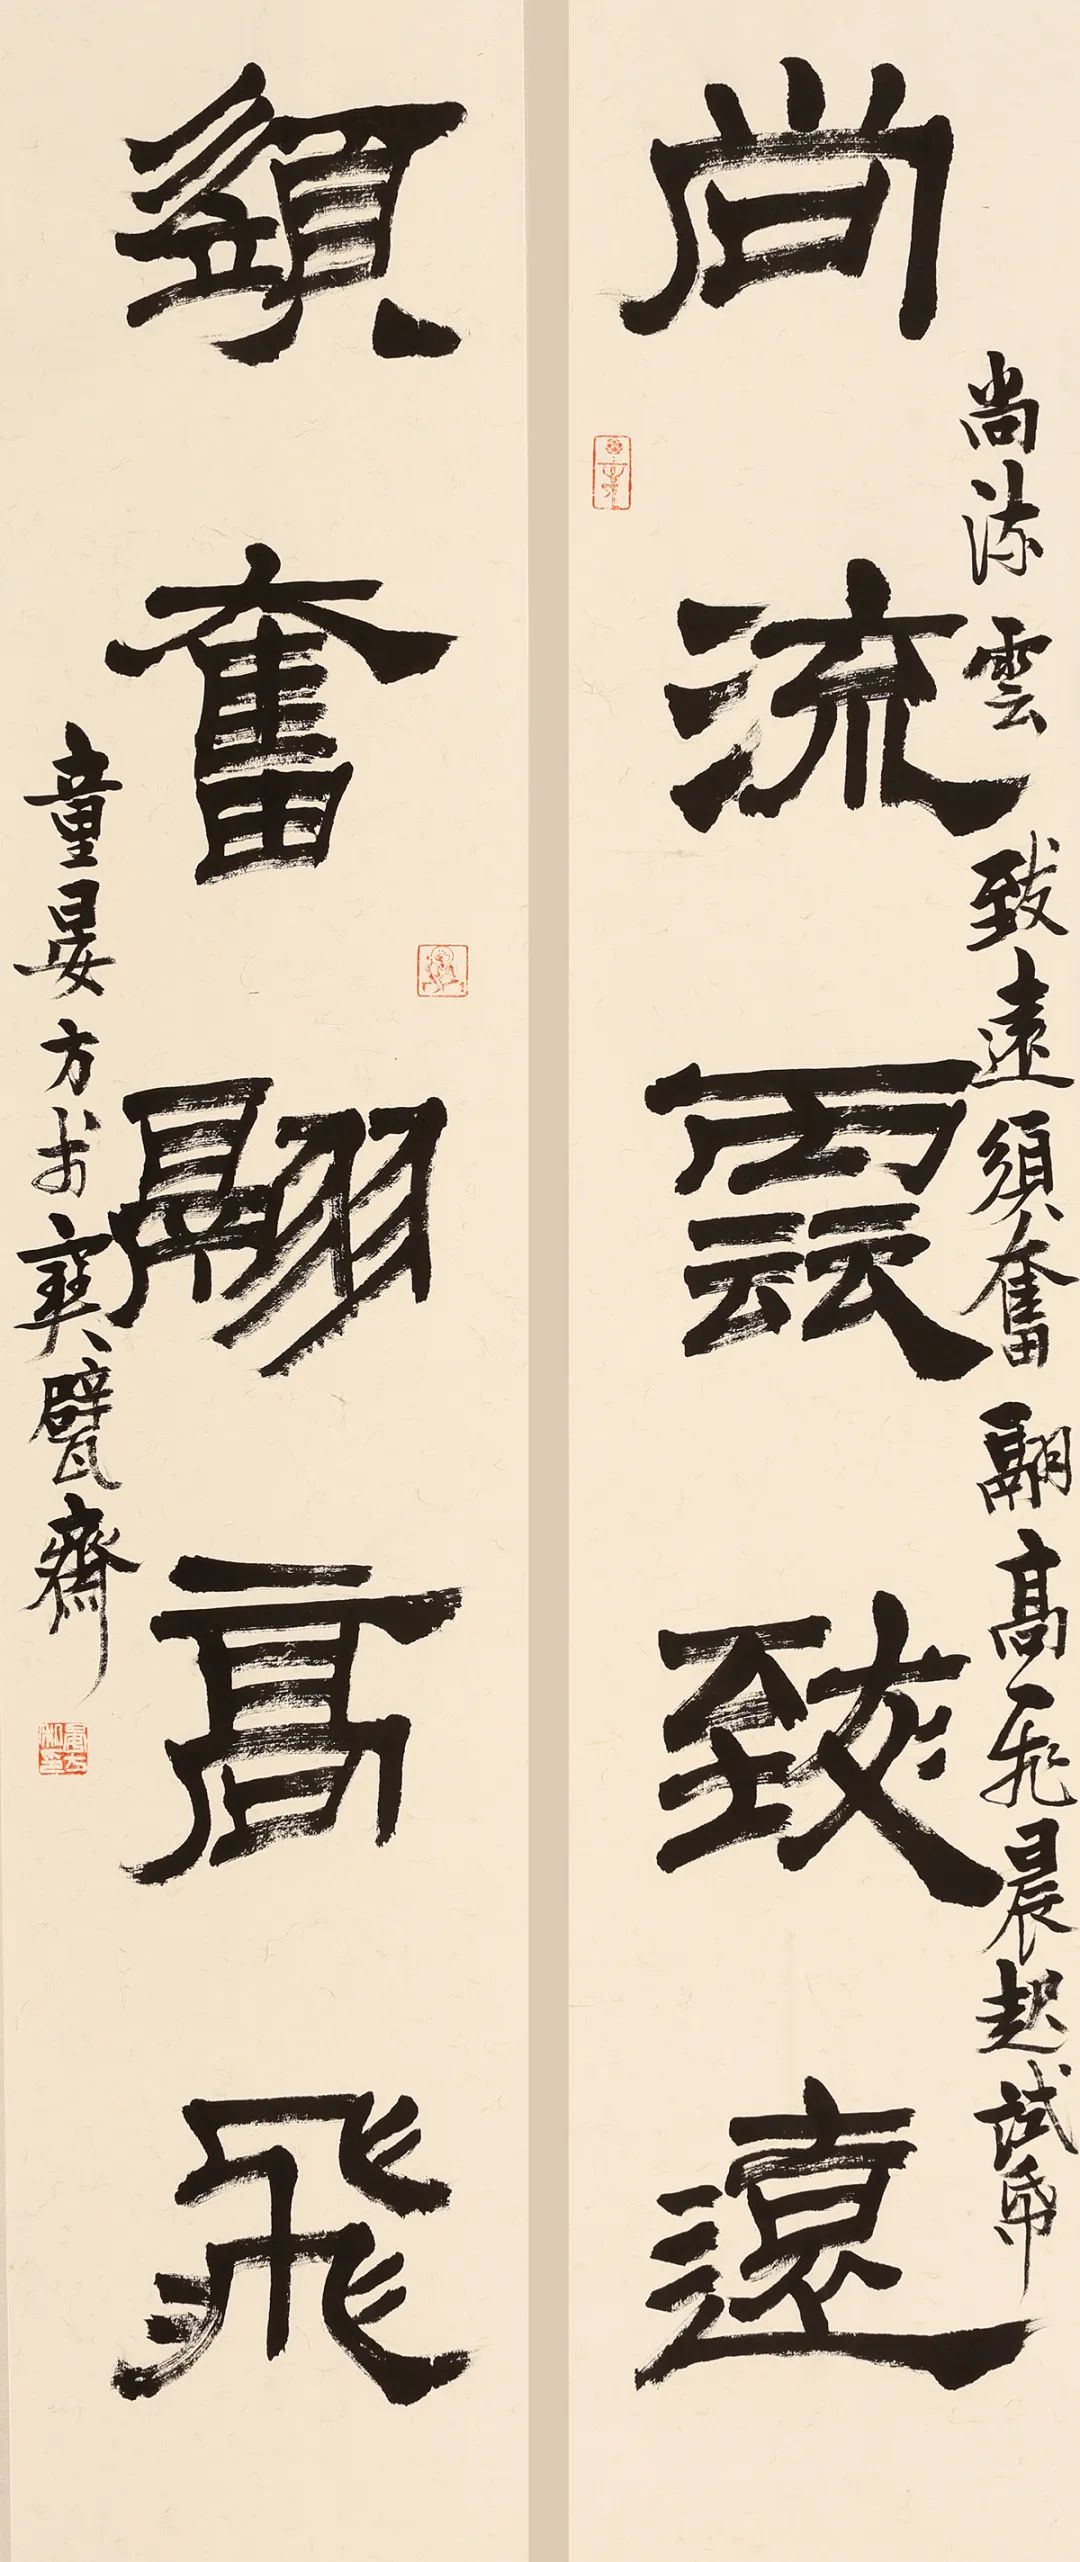 尚流雲致遠
尚流雲致遠須奮翮高飛晨起試筆
須奮翮高飛
童晏方於寶甓齋